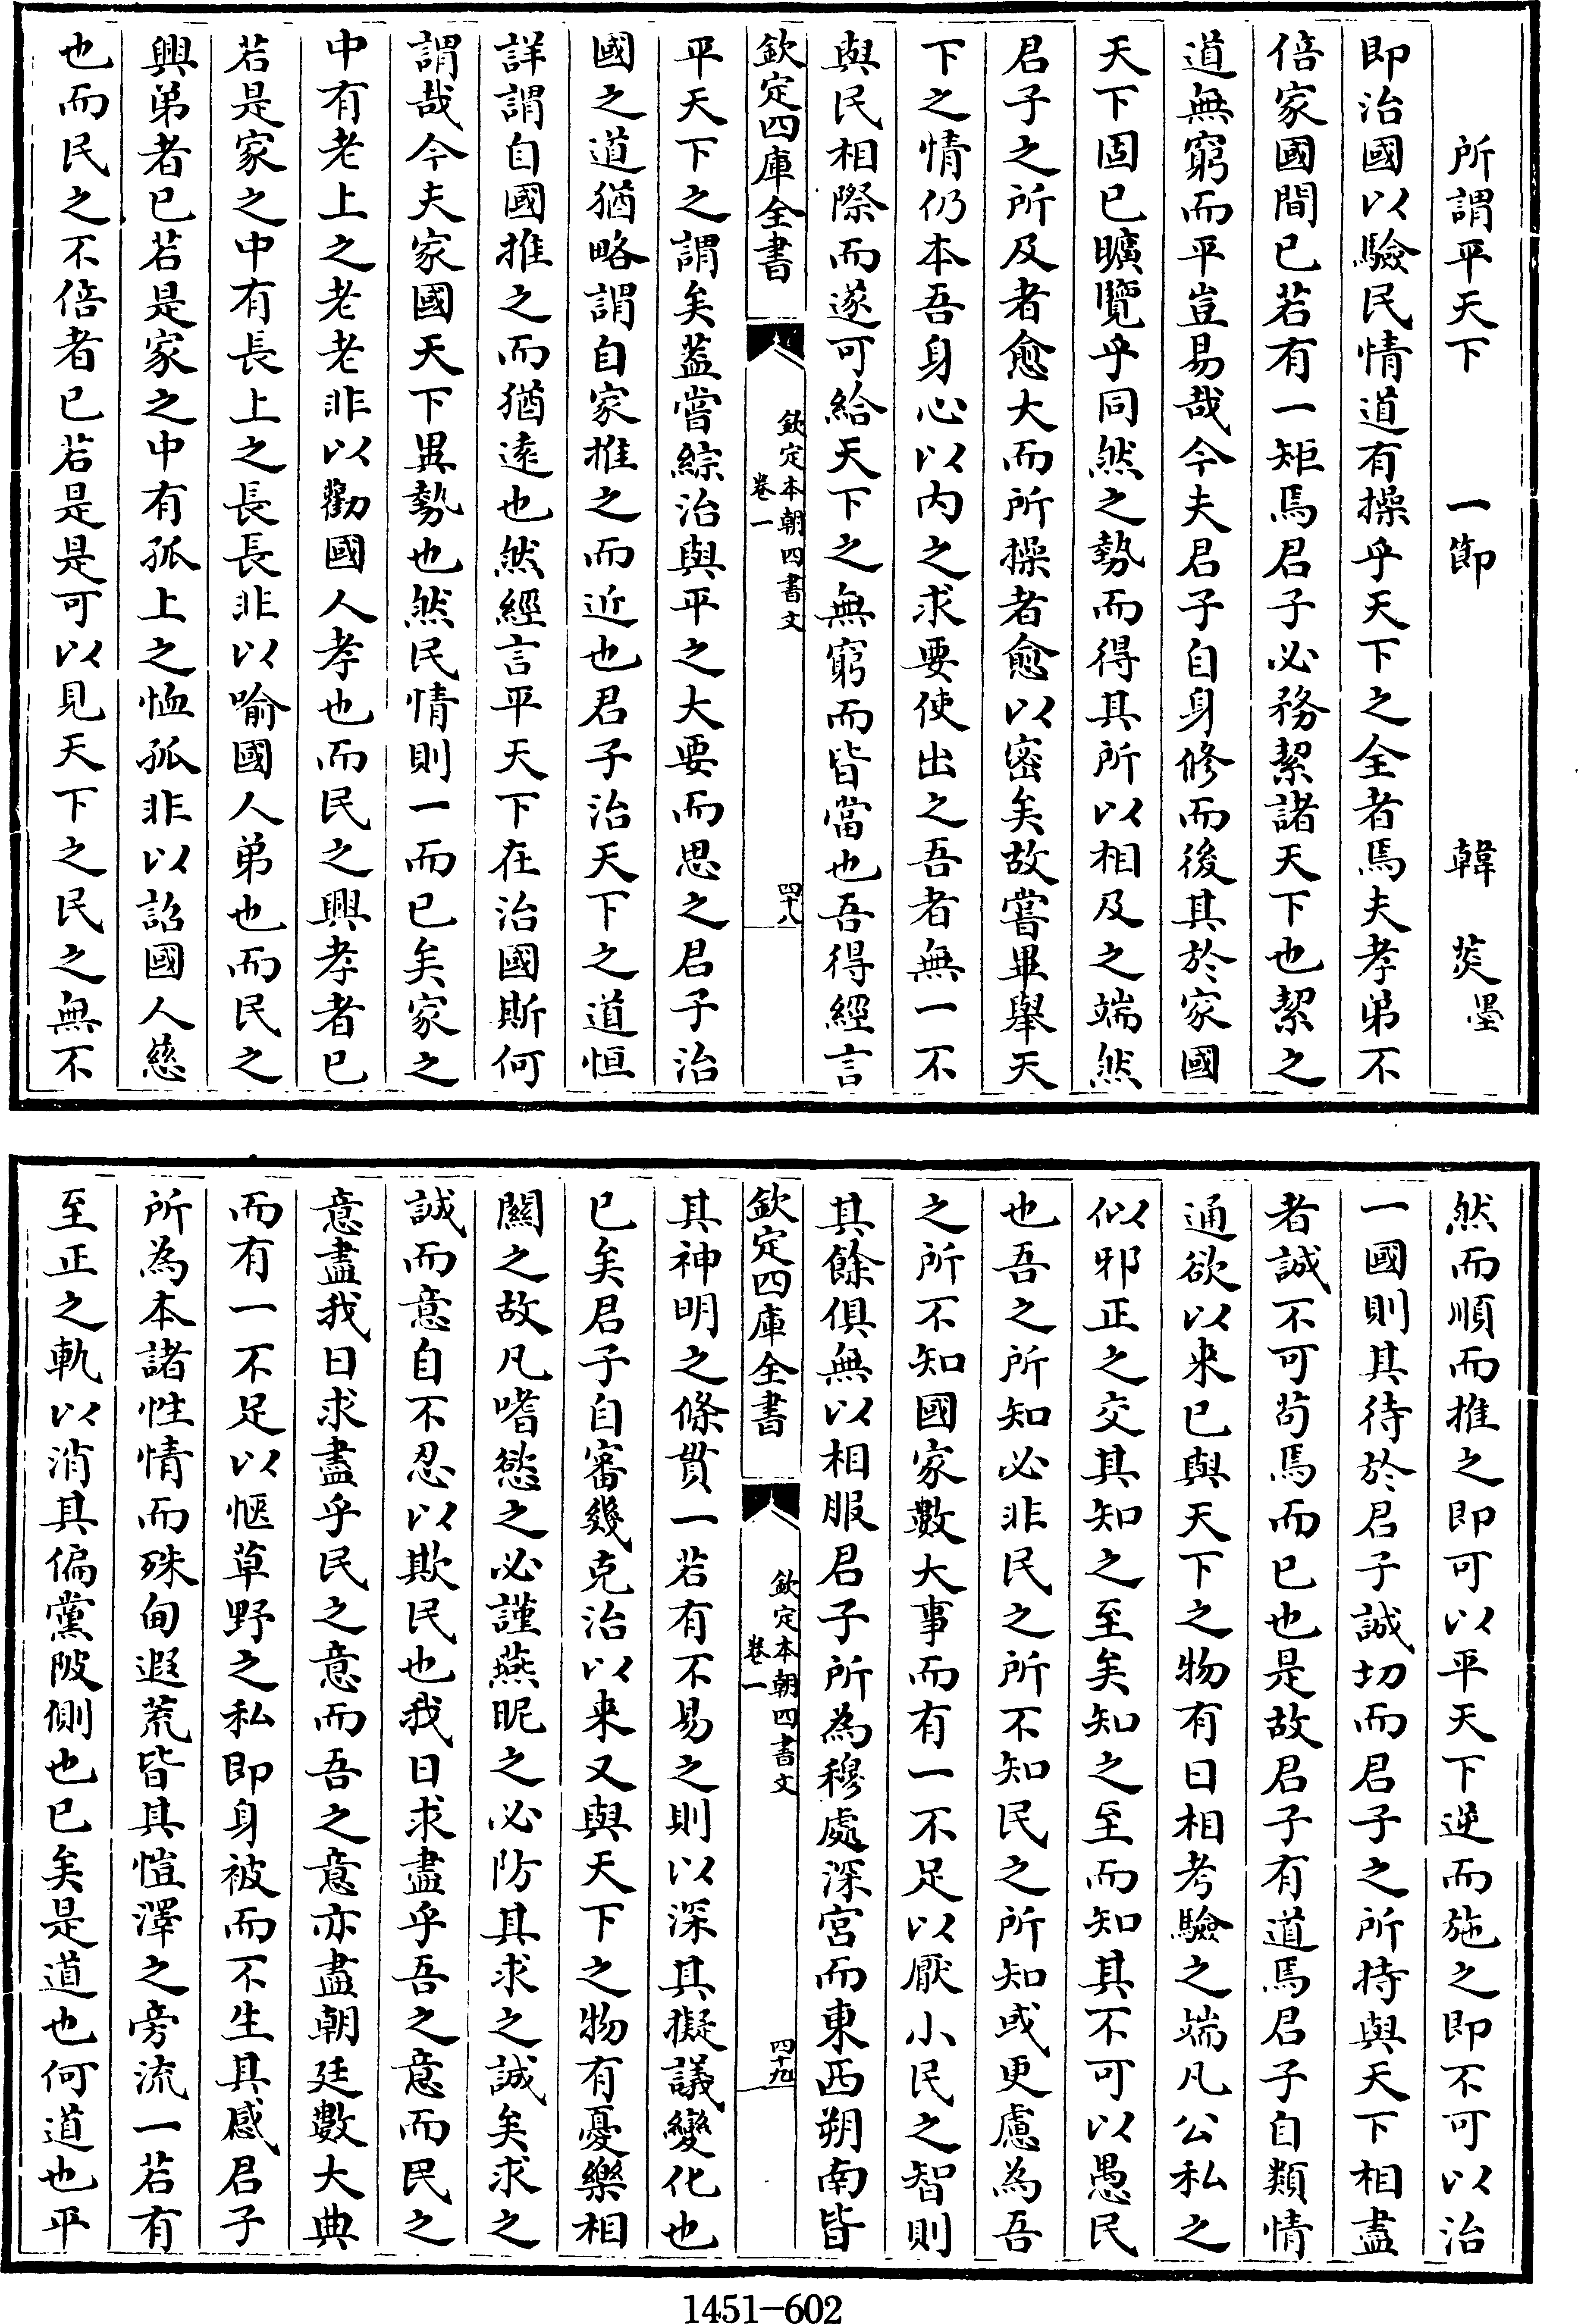 所謂平天下　一節　韓菼墨
即治國以驗民情道有操乎天下之全者焉夫孝弟不
倍家國間已若有一矩焉君子必務絜諸天下也絜之
道無窮而平豈易哉今夫君子自身修而後其於家國
天下固已曠覽乎同然之勢而得其所以相及之端然
君子之所及者愈大而所操者愈以密矣故嘗畢舉天
下之情仍本吾身心以内之求要使出之吾者無一不
與民相際而遂可給天下之無窮而皆當也吾得經言
欽定四庫全書
欽定本朝四書文
卷一
四十八
平天下之謂矣蓋嘗綜治與平之大要而思之君子治
國之道猶略謂自家推之而近也君子治天下之道恒
詳謂自國推之而猶逺也然經言平天下在治國斯何
謂哉今夫家國天下異勢也然民情則一而已矣家之
中有老上之老老非以勸國人孝也而民之興孝者已
若是家之中有長上之長長非以喻國人弟也而民之
興弟者已若是家之中有孤上之恤孤非以詔國人慈
也而民之不倍者已若是是可以見天下之民之無不
然而順而推之即可以平天下逆而施之即不可以治
一國則其待於君子誠切而君子之所持與天下相盡
者誠不可苟焉而已也是故君子有道焉君子自類情
通欲以來已與天下之物有日相考驗之端凡公私之
似邪正之交其知之至矣知之至而知其不可以愚民
也吾之所知必非民之所不知民之所知或更慮為吾
之所不知國家數大事而有一不足以厭小民之智則
其餘俱無以相服君子所為穆處深宫而東西朔南皆
欽定四庫全書
欽定本朝四書文
卷一
四十九
其神明之條貫一若有不易之則以深其擬議變化也
已矣君子自審幾克治以來又與天下之物有憂樂相
關之故凡嗜慾之必謹燕昵之必防其求之誠矣求之
誠而意自不忍以欺民也我日求盡乎吾之意而民之
意盡我日求盡乎民之意而吾之意亦盡朝廷數大典
而有一不足以愜草野之私即身被而不生其感君子
所為本諸性情而殊甸遐荒皆其愷澤之旁流一若有
至正之軌以消其偏黨陂側也已矣是道也何道也平
1451-602